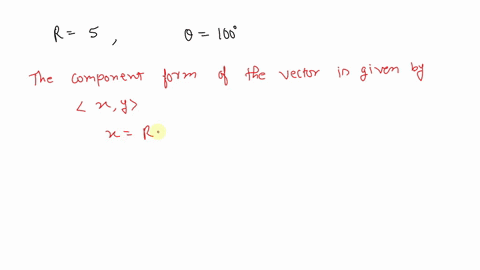 R = 5 , θ = 100°
The component form of the vector is given by
< x, y >
x = R